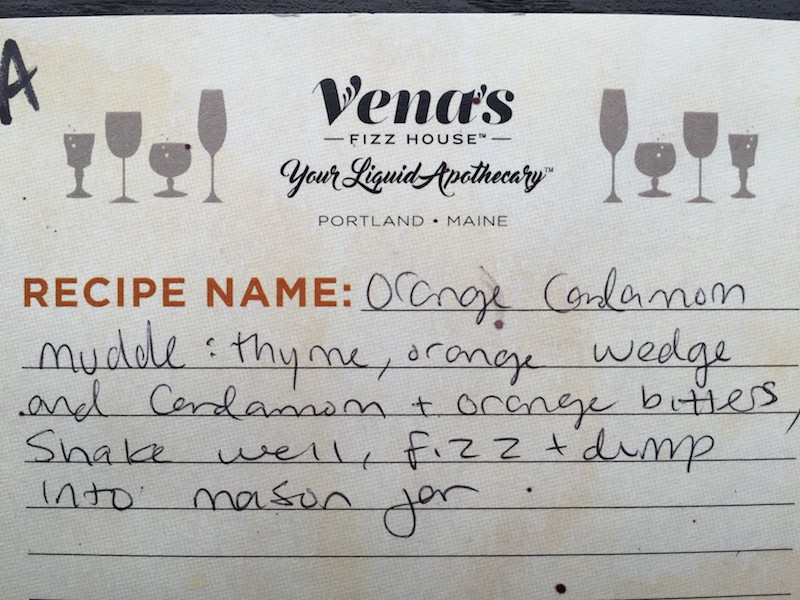 A
Vena's
FIZZ HOUSE™
Your Liquid Apothecary™
PORTLAND • MAINE
RECIPE NAME: Orange Cardamom
muddle : thyme, orange wedge
and Cardamom + orange bitters,
Shake well, fizz + dump
into mason jar